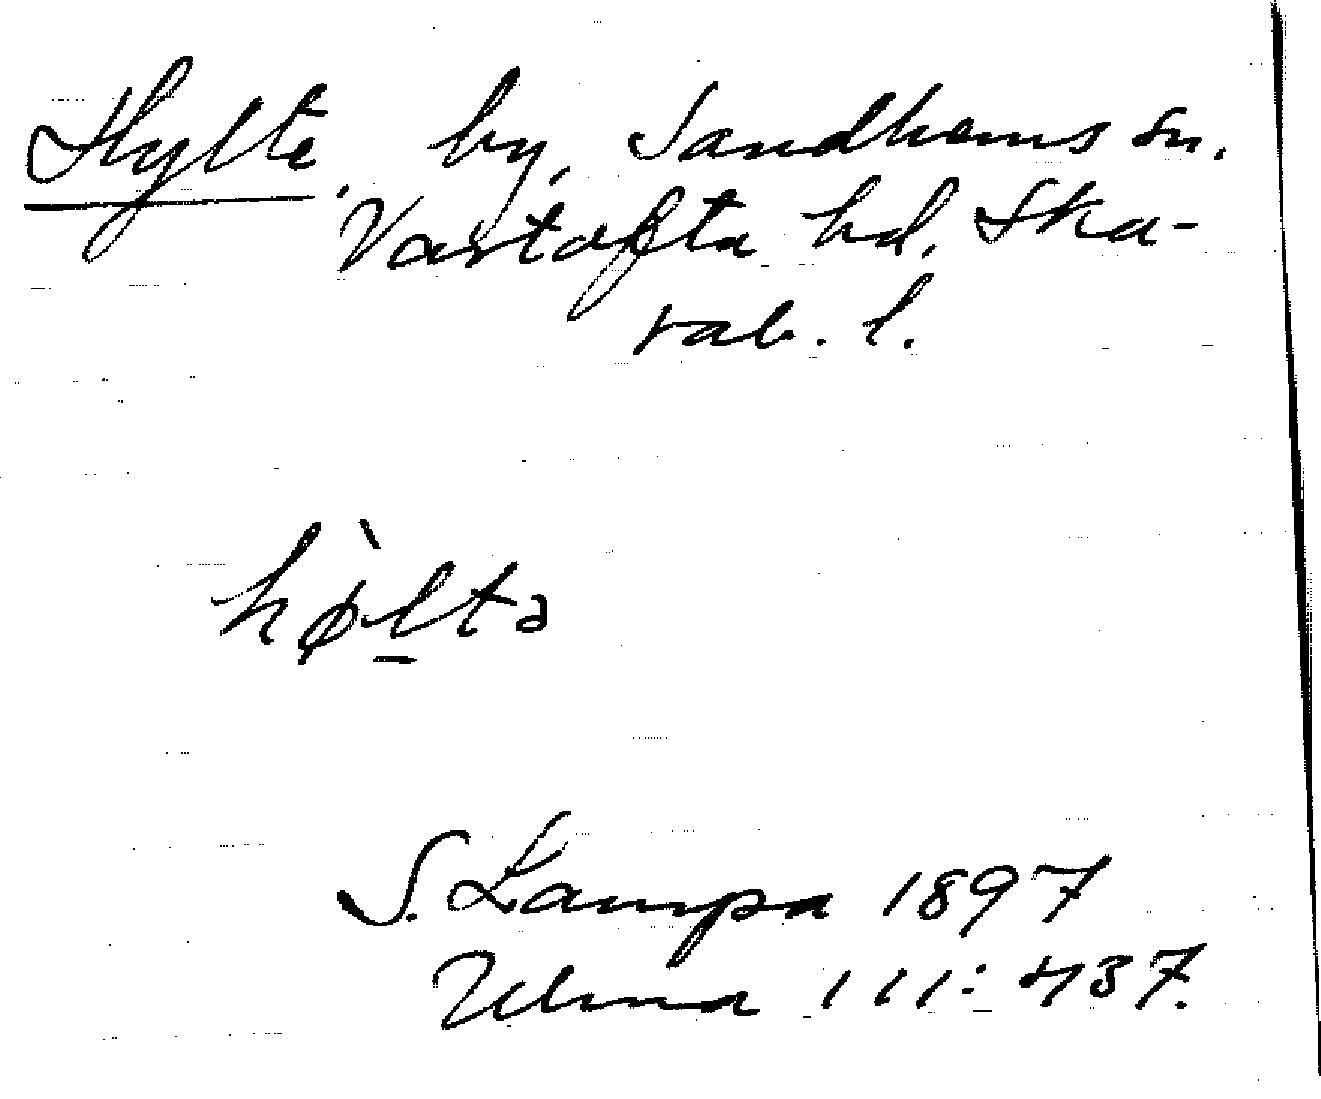 Hylte, by, Sandhems sn.
Vartofta hd, Ska-
rab. l.
hø̀l̠tə
S. Lampa 1897
Ulma 111:437.